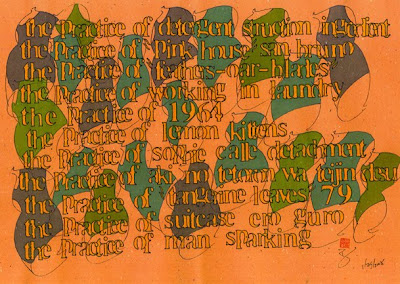 the Practice of detergent striction ingredient
the Practice of Pink house san bruno
the Practice of feathers-oar-blades
the Practice of working in laundry
the Practice of 1964
the Practice of lemon kittens
the Practice of sophie calle detachment
the Practice of aki no teteron wa teijin desu
the Practice of tangerine leaves 79
the Practice of suitcase ero guro
the Practice of man sparking